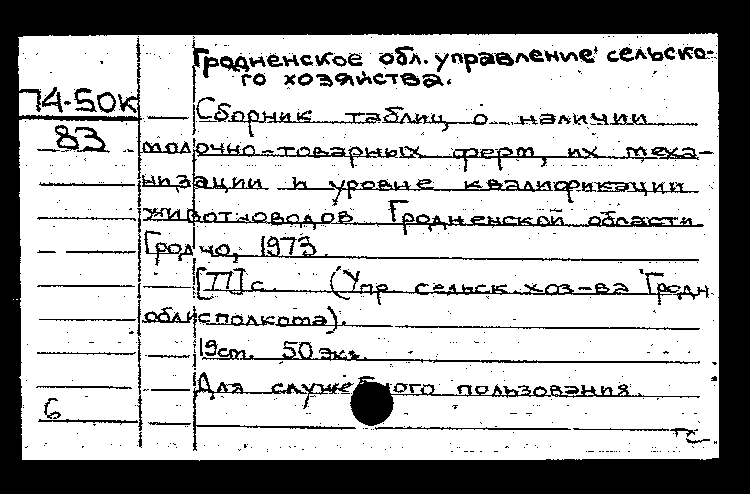 Гродненское обл. управление сельско-
го хозяйства.
74-50к
Сборник таблиц о наличии
83 молочно-товарных ферм, их меха-
низации и уровне квалификации
животноводов Гродненской области
Гродно, 1973.
[77] с. (Упр сельск. хоз-ва Гродн
облисполкома).
19см. 50 экз.
Для служебного пользования.
6